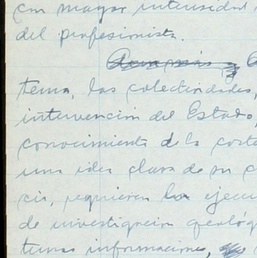 con mayor intensidad
del profesionista.
tema, las colectividades,
intervención del Estado,
conocimiento de la
una idea clara de su
requieren la
de investigación geológ
informaciones,